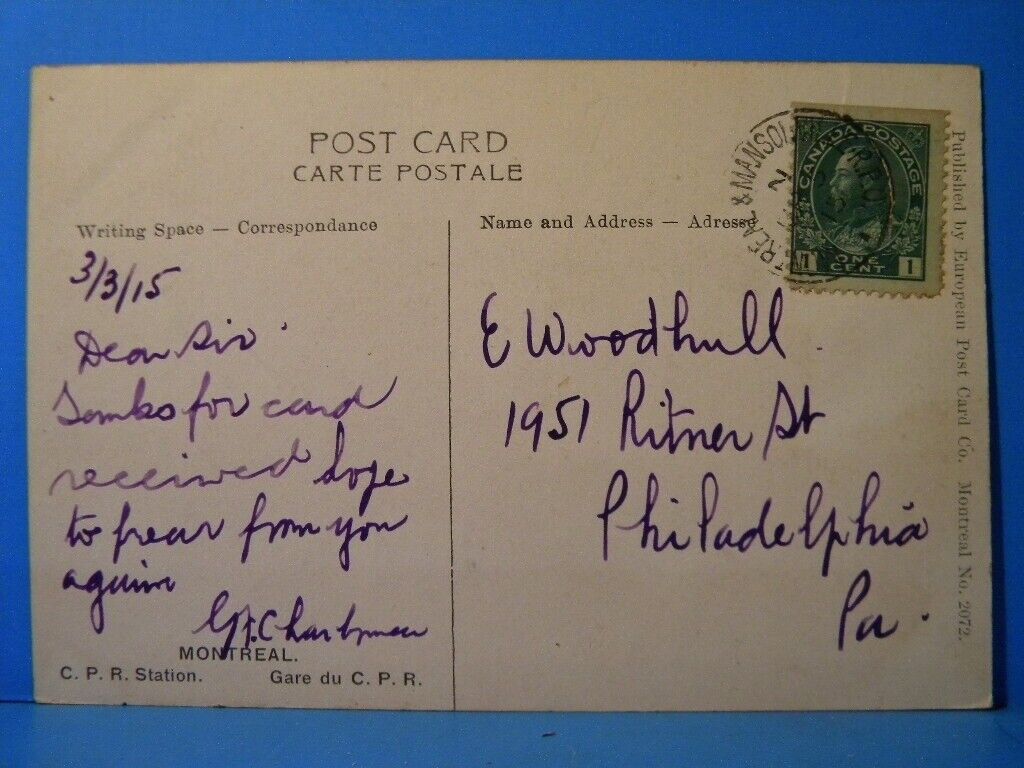 POST CARD
CARTE POSTALE
Writing Space — Correspondance
3/3/15
Dear Sir
for card
received hope
to hear from you
again
MONTREAL.
C. P. R. Station. Gare du C. P. R.
Name and Address — Adresse
E Woodhull
1951 Ritner St
Philadelphia
Pa.
CANADA POSTAGE
1 ONE CENT 1
TREAL & MANSO
Published by European Post Card Co. Montreal No. 2072.